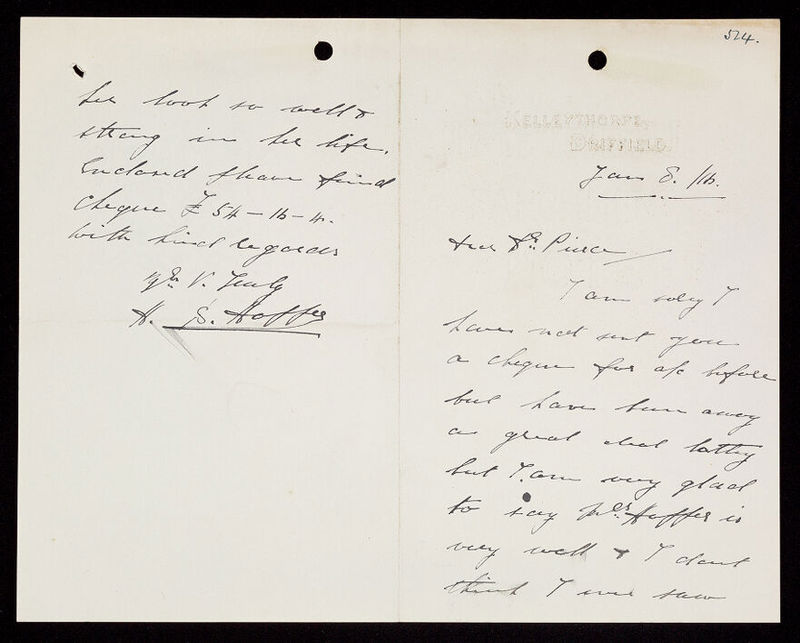 524.
KELLEYTHORPE,
DRIFFIELD.
Jan 8. /16.
Dear Dr. Pierce
I am sorry I
have not sent you
a cheque for a/c before
but have been away
a great deal lately
but I am very glad
to say Mrs Hoffer is
very well & I dont
think I ever saw
her look so well &
strong in her life.
Enclosed please find
cheque £ 54-16-4.
With kind regards
Yrs V. Truly
H. S. Hoffer